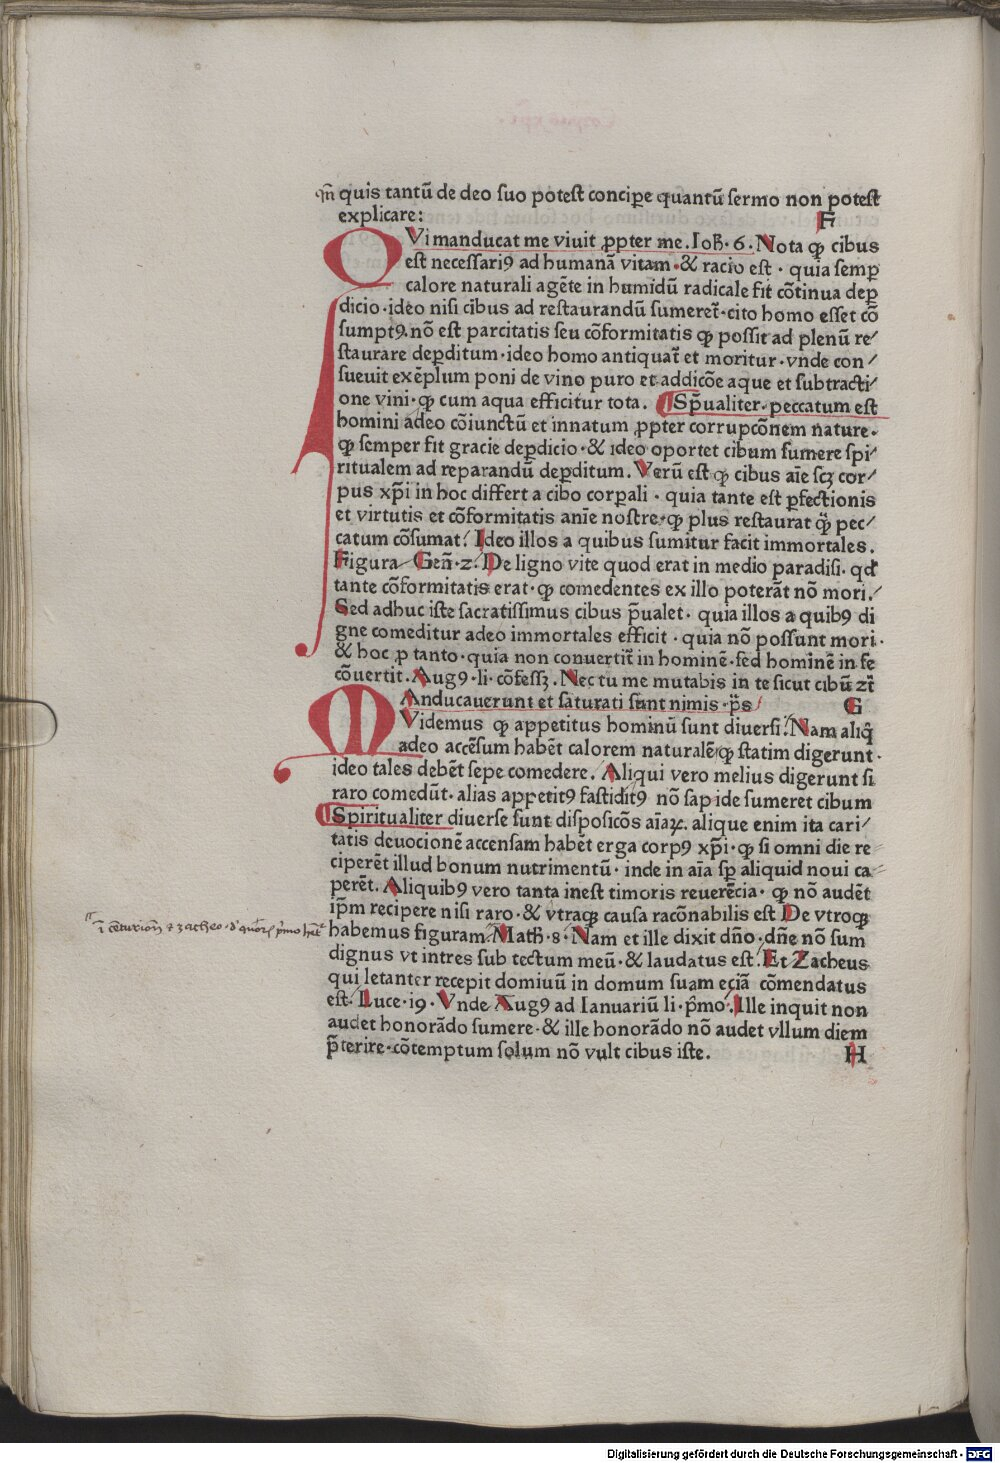 qm̄ quis tantū de deo suo potest concipe quantū sermo non potest
explicare: F
QVi manducat me viuit ꝓpter me. Ioh̄. 6. Nota ꝙ cibus
est necessariꝯ ad humanā vitam · & racio est · quia semꝑ
calore naturali agēte in humidū radicale fit cōtinua deꝑ
dicio · ideo nisi cibus ad restaurandū sumeret̄ · cito homo esset cō
sumptꝯ. nō est parcitatis seu cōformitatis ꝙ possit ad plenū re⸗
staurare deꝑditum · ideo homo antiquat̄ et moritur · vnde con⸗
sueuit exēplum poni de vino puro et addicōe aque et subtracti⸗
one vini · ꝙ cum aqua efficitur tota. Sp̄ualiter · peccatum est
homini adeo cōiunctū et innatum ꝓpter corrupcōnem nature ·
ꝙ semper fit gracie deꝑdicio · & ideo oportet cibum sumere spi⸗
ritualem ad reparandū deꝑditum. Verū est ꝙ cibus aīe scꝫ cor⸗
pus xp̄i in hoc differt a cibo corꝑali · quia tante est ꝑfectionis
et virtutis et cōformitatis anīe nostre · ꝙ plus restaurat ꝙ̄ pec⸗
catum cōsumat. Ideo illos a quibus sumitur facit immortales.
Figura Gen̄ · 2. De ligno vite quod erat in medio paradisi. qd̄
tante cōformitatis erat · ꝙ comedentes ex illo poterāt nō mori.
Sed adhuc iste sacratissimus cibus p̄ualet · quia illos a quibꝯ di
gne comeditur adeo immortales efficit · quia nō possunt mori ·
& hoc ꝓ tanto · quia non conuertit̄ in hominē · sed hominē in se
cōuertit. Augꝯ · li · cōfessꝫ. Nec tu me mutabis in te sicut cibū ⁊c̄
MAnducauerunt et saturati sunt nimis · p̄s G
Videmus ꝙ appetitus hominū sunt diuersi. Nam aliq̄
adeo accēsum habēt calorem naturalē ꝙ statim digerunt ·
ideo tales debēt sepe comedere. Aliqui vero melius digerunt si
raro comedūt · alias appetitꝯ fastiditꝯ nō sapide sumeret cibum
Spiritualiter diuerse sunt disposicōs aīaꝝ. alique enim ita cari⸗
tatis deuocionē accensam habēt erga corpꝯ xp̄i · ꝙ si omni die re⸗
ciperēt illud bonum nutrimentū · inde in aīa sꝑ aliquid noui ca⸗
perēt. Aliquibꝯ vero tanta inest timoris reuerēcia · ꝙ nō audēt
ip̄m recipere nisi raro · & vtraqꝫ causa racōnabilis est De vtroqꝫ
habemus figuram. Math̄ · 8 · Nam et ille dixit dn̄o · dn̄e nō sum
dignus vt intres sub tectum meū · & laudatus est. Et Zacheus
qui letanter recepit domiuū in domum suam eciā cōmendatus
est. Luce · 19 · Vnde Augꝯ ad Ianuariū li · p̄mo. Ille inquit non
audet honorādo sumere · & ille honorādo nō audet vllum diem
p̄terire · cōtemptum solum nō vult cibus iste. H
ī cēturiōn ⁊ zacheo ·
Digitalisierung gefördert durch die Deutsche Forschungsgemeinschaft · DFG